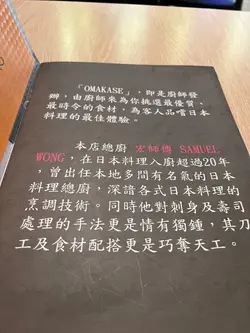 「OMAKASE」，即是廚師發
辦，由廚師來為你挑選最優質、
最時令的食材，為客人品嚐日本
料理的最佳體驗。
本店總廚 宏師傅 SAMUEL
WONG，在日本料理入廚超過20年
，曾出任本地多間有名氣的日本
料理總廚，深諳各式日本料理的
烹調技術。同時他對刺身及壽司
處理的手法更是情有獨鍾，其刀
工及食材配搭更是巧奪天工。